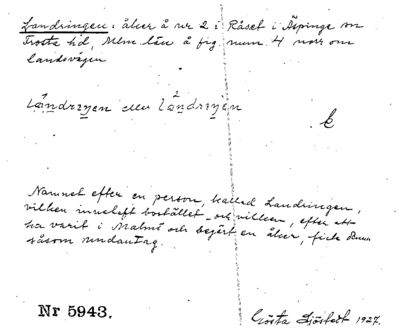 Landringen: åker å nr 2 i Råset i Äspinge sn
Frosta hd, Mlm län å fig. num. 4 norr om
landsvägen
k
Namnet efter en person, kallad Landringen,
vilken innehaft bostället och vilken, efter att
ha varit i Malmö och begärt en åker, fick denna
såsom undantag.
Nr 5943. Gösta Sjöstedt 1927.